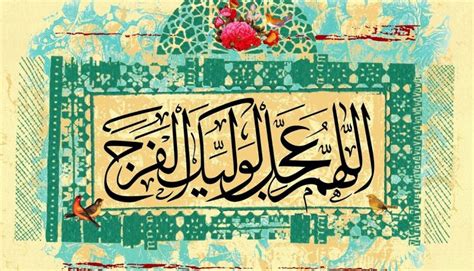 اللّٰهُمَّ عَجِّل لِوَلِیِّکَ الفَرَج